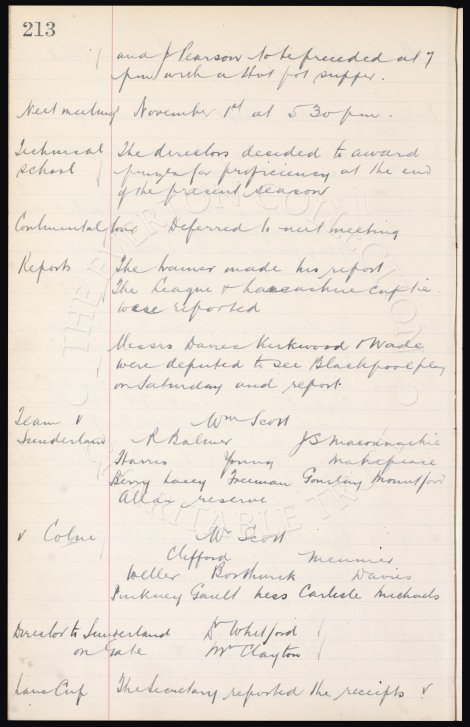 213
and J Pearson to be preceded at 7
pm with a Hot pot supper.
Next meeting November 1st at 5 30 pm.
Technical The directors decided to award
school prizes for proficiency at the end
of the present season
Continental tour Deferred to next meeting
Reports The trainer made his report
The League & Lancashire Cup tie
were reported
Messrs Davies Kirkwood & Wade
were deputed to see Blackpool play
on Saturday and report.
Team v Wm Scott
Sunderland R Balmer J S Maconnachie
Harris Young Makepeace
Berry Lacey Freeman Gourlay Mountford
Allan reserve
v Colne Scott
Clifford Meunier
Weller Borthwick Davies
Pinkney Gault Hess Carlisle Michaels
Director to Sunderland Dr Whitford
on Gate Mr Clayton
Lancs Cup The Secretary reported the receipts v
THE EVERTON COLLECTION
CHARITABLE TRUST